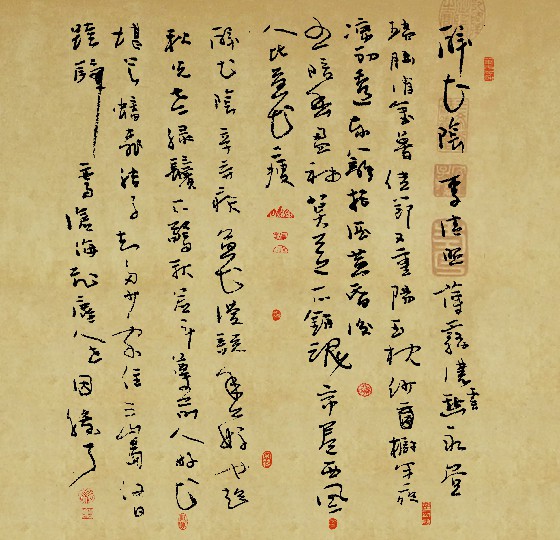 醉花陰 李清照 薄霧濃雲愁永晝
瑞腦消金獸佳節又重陽玉枕紗窗櫥半夜
涼初透東籬把酒黃昏後
有暗香盈袖莫道不銷魂 帘卷西風
人比黃花瘦
醉花陰 辛棄疾 黃花漫說年年好也趁
秋光老綠鬢不驚秋若鬥尊前人好花
堪笑蟠桃結子知多少家住三山島何日
跨歸鸞滄海飛塵人世因緣了